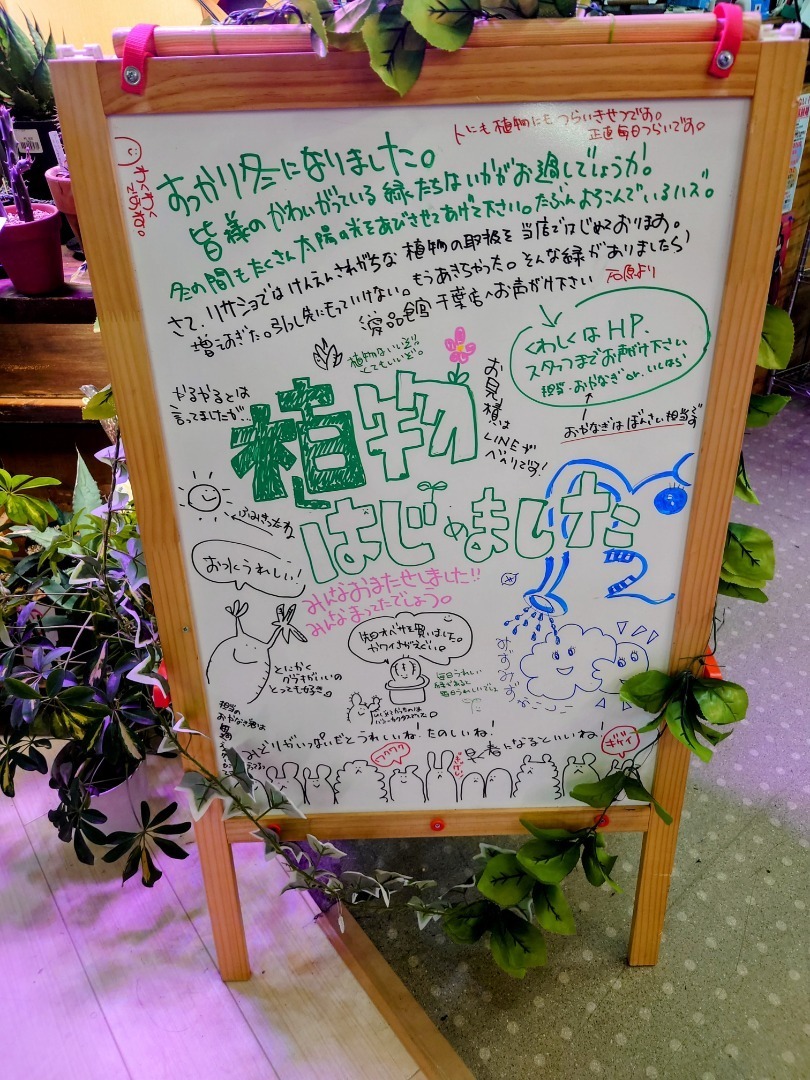 人にも植物にもつらいきせつです。
正直毎日つらいです。
わくわく
すっかり冬になりました。
皆様のかわいがっている緑たちはいかがお過しでしょうか。
冬の間もたくさん太陽の光をあびさせてあげて下さい。たぶんよろこんでいるハズ。
さて、リサショではけんえんされがちな植物の取扱を当店ではじめております。
増えすぎた。引っし先にもっていけない。もうあきちゃった。そんな緑がありましたら
愛品館千葉店へお声がけ下さい
石原より
くわしくはHP.
スタッフまでお声がけ下さい
担当・おやなぎ or いしはら
おやなぎはぼんさい担当です
植物はいいぞ!!
とてもいいぞ。
やるやるとは
言ってましたが...
お見積は
LINEが
べんりです!
植物
はじめました
お水うれしい!
みんなおまたせしました!!
みんなまってたでしょう。
みずみず
とにかく
グラキがいいの
とっても好き。
先日オペサを買いました。
カワイさがえぐい。
毎日うれしい
毎日うれしいでしょ
担当の
おやなぎ君は
みどりがいっぱいだとうれしいね。たのしいね!
早く春になるといいね!
ワクワク